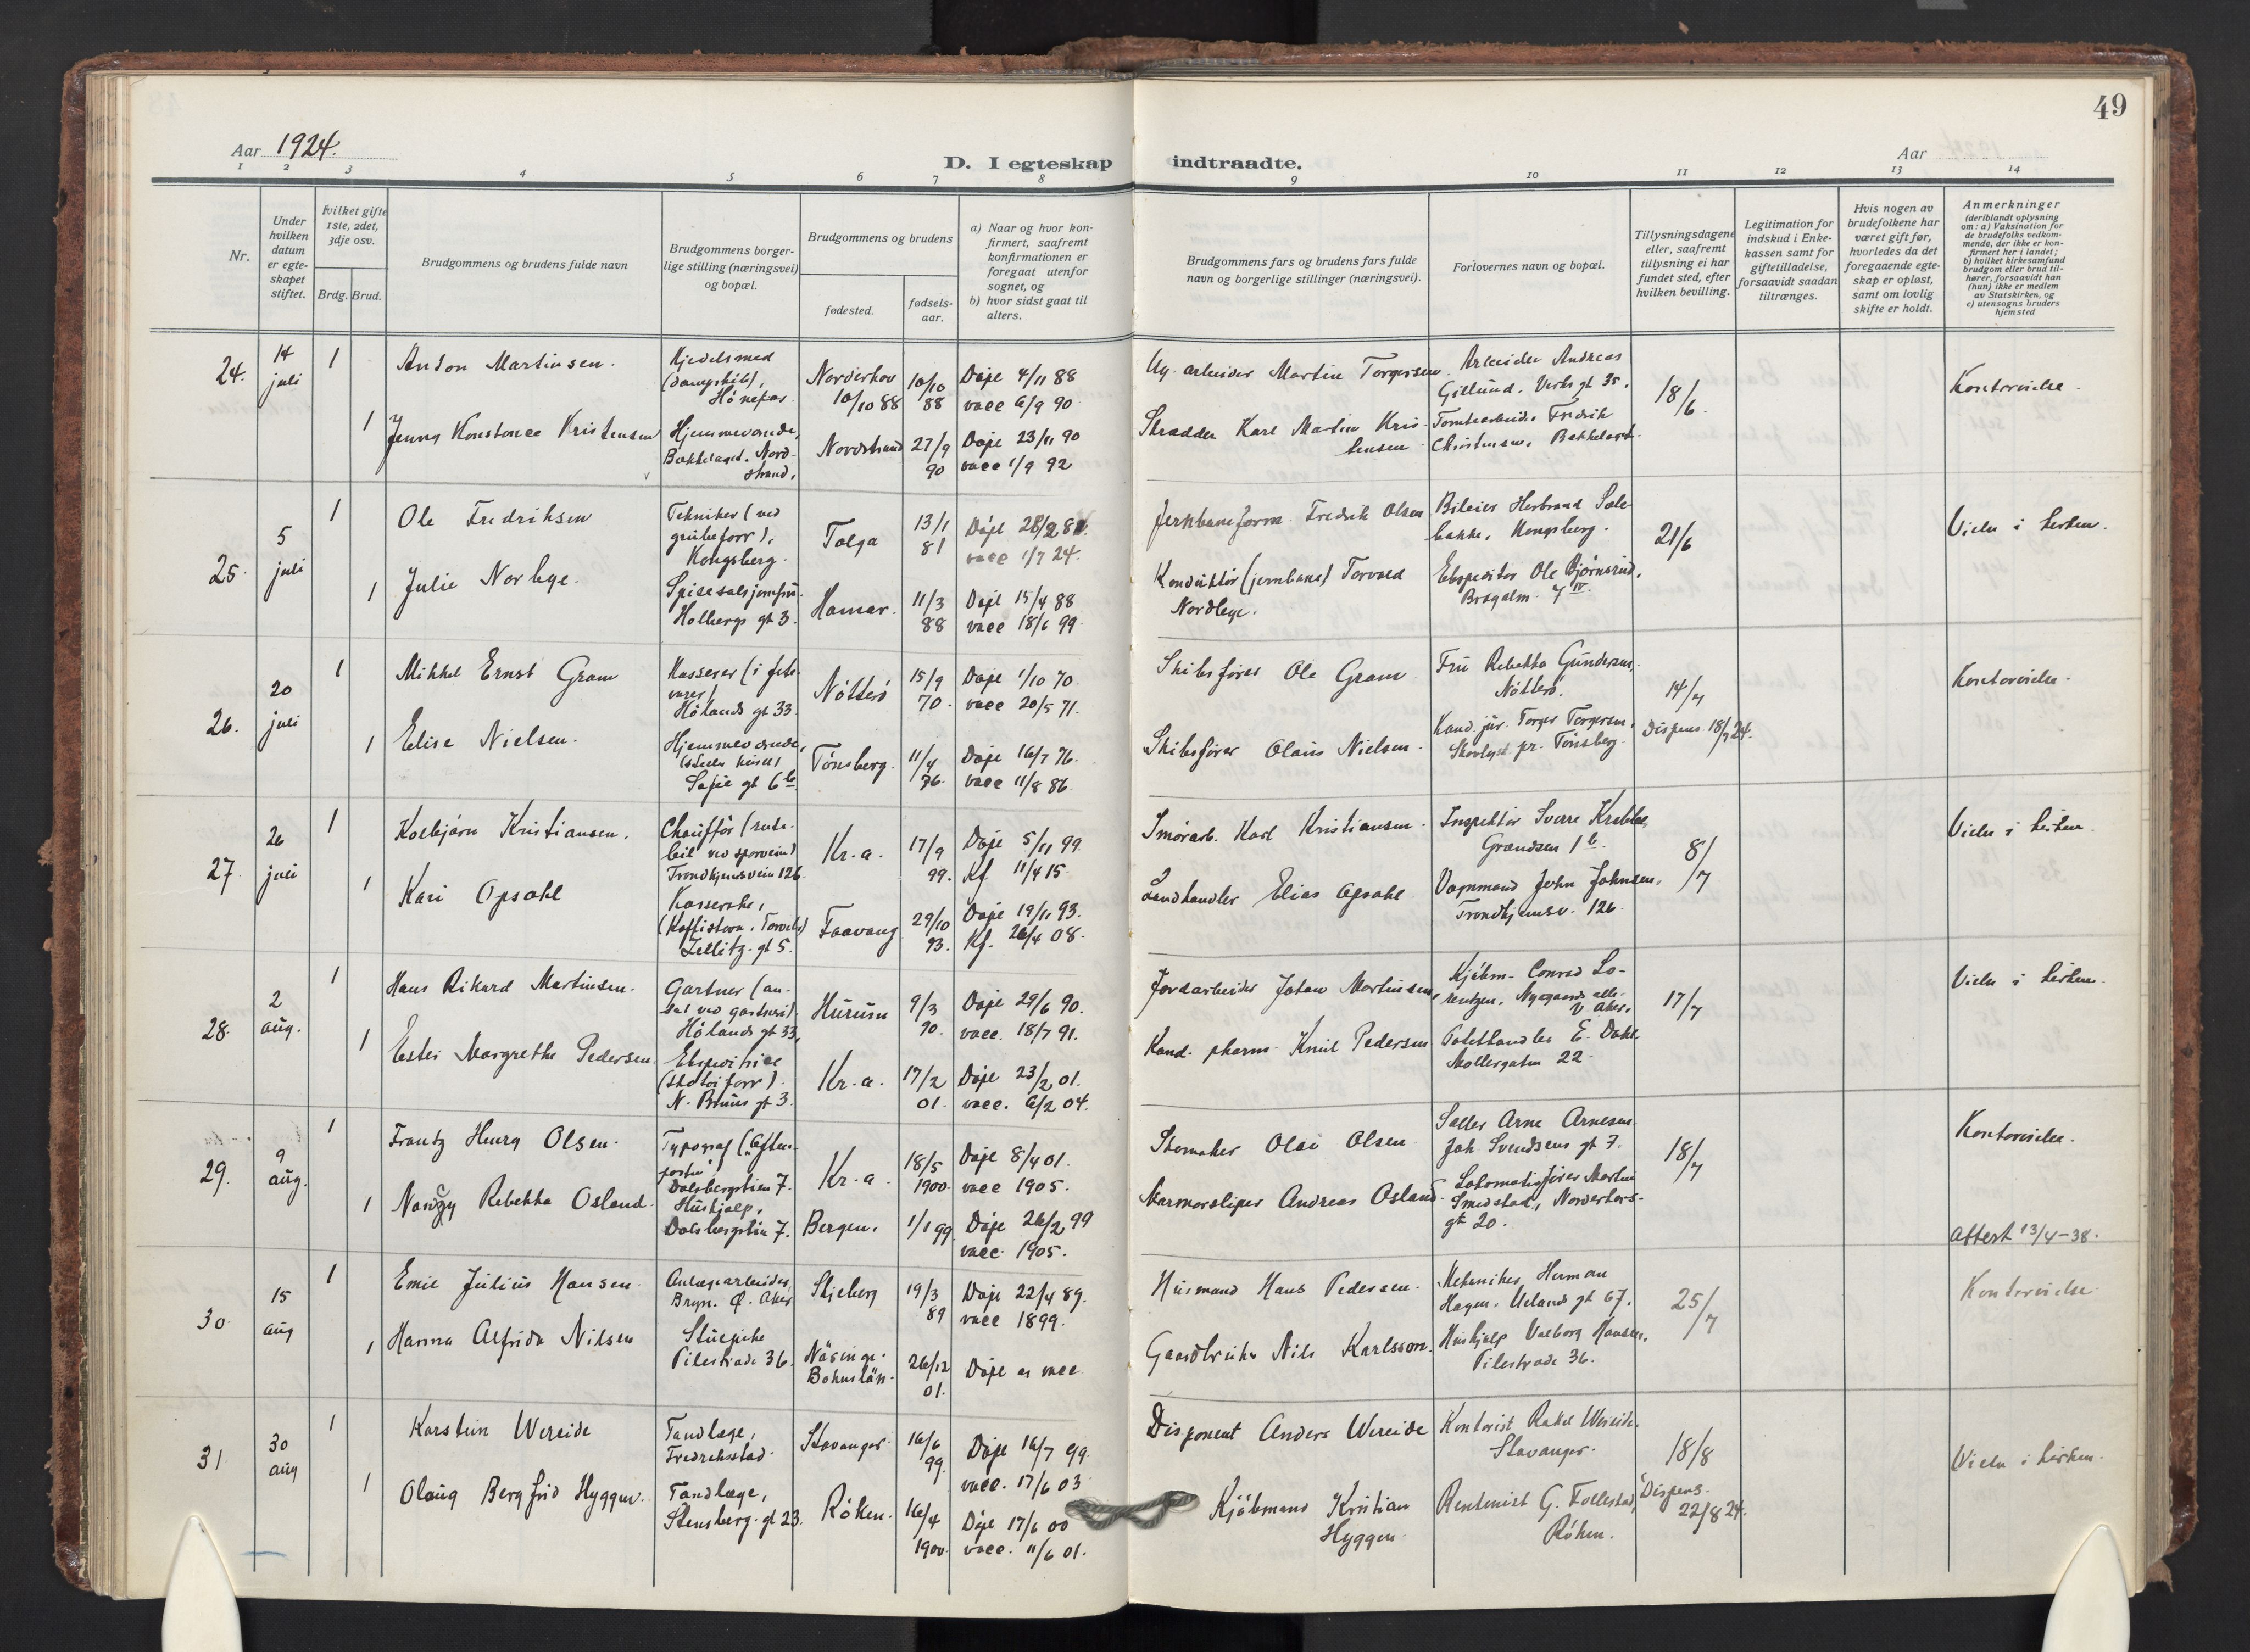 49
Aar 1924.
D. I egteskap indtraadte.
Aar
1 2 3 4 5 6 7 8 9 10 11 12 13 14
Nr.
Under hvilken datum er egteskapet stiftet.
Hvilket gifte 1ste, 2det, 3dje osv.
Brdg. Brud.
Brudgommens og brudens fulde navn
Brudgommens borgerlige stilling (næringsvei) og bopæl.
Brudgommens og brudens
fødested.
fødselsaar.
a) Naar og hvor konfirmert, saafremt konfirmationen er foregaat utenfor sognet, og
b) hvor sidst gaat til alters.
Brudgommens fars og brudens fars fulde navn og borgerlige stillinger (næringsvei).
Forlovernes navn og bopæl.
Tillysningsdagene eller, saafremt tillysning ei har fundet sted, efter hvilken bevilling.
Legitimation for indskud i Enkekassen samt for giftetilladelse, forsaavidt saadan tiltrænges.
Hvis nogen av brudefolkene har været gift før, hvorledes da det foregaaende egteskap er opløst, samt om lovlig skifte er holdt.
Anmerkninger
(deriblandt oplysning om: a) Vaksination for de brudefolks vedkommende, der ikke er konfirmert her i landet;
b) hvilket kirkesamfund brudgom eller brud tilhører, forsaavidt han (hun) ikke er medlem av Statskirken, og
c) utensogns bruders hjemsted
24. 14 juli 1 Anton Martinsen. Kjedelsmed (dampskib), Hønefos. Norderhov 10/10 88 10/10 88 Døpt 4/11 88 vacc 6/9 90 Ug. arbeider Martin Torgersen. Arbeider Andreas Gillund. Verks gt 35. 18/6. Kontorvielse.
1 Jenny Konstance Kristensen Hjemmeværende, Bækkelaget. Nordstrand. Nordstrand 27/9 90 Døpt 23/11 90 vacc 1/9 92 Skrædder Karl Martin Kristensen Tomtearbeider Fredrik Christensen, Bækkelaget.
25. 5 juli 1 Ole Fredriksen Tekniker (ved grubeforr), Kongsberg. Tolga 13/1 81 Døpt 28/2 81. vacc 1/7 24. Jernbaneform. Fredrik Olsen Bileier Herbrand Solebakke, Kongsberg. 21/6 Vielse i kirken.
1 Julie Norbye. Spisesalsjomfru. Holbergs gt 3. Hamar. 11/3 88 Døpt 15/4 88 vacc 18/6 99. Konduktør (jernbane) Torvald Nordbye. Ekspeditør Ole Bjørnsrud, 7 IV.
26. 20 juli 1 Mikkel Ernst Gram Kasserer Hølands gt 33. Nøtterø 15/9 70. Døpt 1/10 70. vacc 20/5 71. Skibsfører Ole Gram Fru Rebekka Gundersen, Nøtterø. 14/7 Dispens. 18/7 24. Kontorvielse.
1 Elise Nielsen. Hjemmeværende, Sofie gt 6 b. Tønsberg. 11/4 76. Døpt 16/7 76. vacc 11/8 86. Skibsfører Olaus Nielsen. Kand. jur. Torger Torgersen, pr. Tønsberg.
27. 26 juli 1 Kolbjørn Kristiansen. Chauffør (rutebil ved sporvein) Trondhjemsvein 126. Kr.a. 17/9 99. Døpt 5/11 99. Kf. 11/4 15. Smørarb. Karl Kristiansen. Inspektør Sverre Krabbe, Grændsen 1 b. 8/7 Vielse i kirken.
1 Kari Opsahl Kasserske, (Kaffistova, Torvet) gt 5. Faavang 29/10 93. Døpt 19/11 93. Kf. 26/4 08. Landhandler Elias Opsahl Vognmand John Johnsen, Trondhjemsv. 126.
28. 2 aug. 1 Hans Rikard Martinsen. Gartner (ansat ved gartneri). Hølands gt 33. Hurum 9/3 90. Døpt 29/6 90. vacc. 18/7 91. Jordarbeider Johan Martinsen, Kjøbm. Conrad Lorentzen, Nygaards alle, V. Aker. 17/7 Vielse i kirken.
1 Ester Margrethe Pedersen. Ekspeditrice (skotøiforr). N. Bruns gt 3. Kr.a. 17/2 01. Døpt 23/2 01. vacc. 6/2 04. Kand. pharm. Knut Pedersen Potethandler E. Dahl. Møllergaten 22.
29. 9 aug. 1 Frantz Henry Olsen. Typograf ("Aftenposten") Dalsbergstien 7. Kr.a. 18/5 1900. Døpt 8/4 01. vacc 1905. Skomaker Olai Olsen Sadler Arne Arnesen. Joh. Svendsens gt 7. 18/7 Kontorvielse.
1 Nancy Rebekka Osland. Hushjælp, Dalsbergstien 7. Bergen. 1/1 99. Døpt 26/2 99 vacc. 1905. Marmorsliper Andreas Osland. Lokomotivfører Martin Smedstad, Norderhovsgt 20. Attest 13/4-38.
30. 15 aug 1 Emil Julius Hansen Anlægsarbeider, Bryn. Ø. Aker. Skjeberg 19/3 89 Døpt 22/4 89. vacc 1899. Husmand Hans Pedersen. Mekaniker Herman Hagen. Uelands gt 67. 25/7 Kontorvielse.
1 Hanna Alfrida Nilsen Stuepike Pilestræde 36. Näsinge. Bohuslän. 26/12 01. Døpt og vacc Gaardbruker Nils Karlsson. Hushjælp Valborg Hansen, Pilestræde 36.
31. 30 aug 1 Karstein Wereide Tandlæge, Fredriksstad. Stavanger. 16/6 99. Døpt 16/7 99. vacc. 17/6 03 Disponent Anders Wereide Kontorist Rakel Wereide. Stavanger. 18/8 Vielse i kirken.
1 Olaug Bergfrid Hyggen. Tandlæge, Stensberg. gt 23. Røken. 16/4 1900. Døpt 17/6 00 vacc. 11/6 01. Kjøbmand Kristian Hyggen. G. Follestad, Røken. Dispens. 22/8 24.